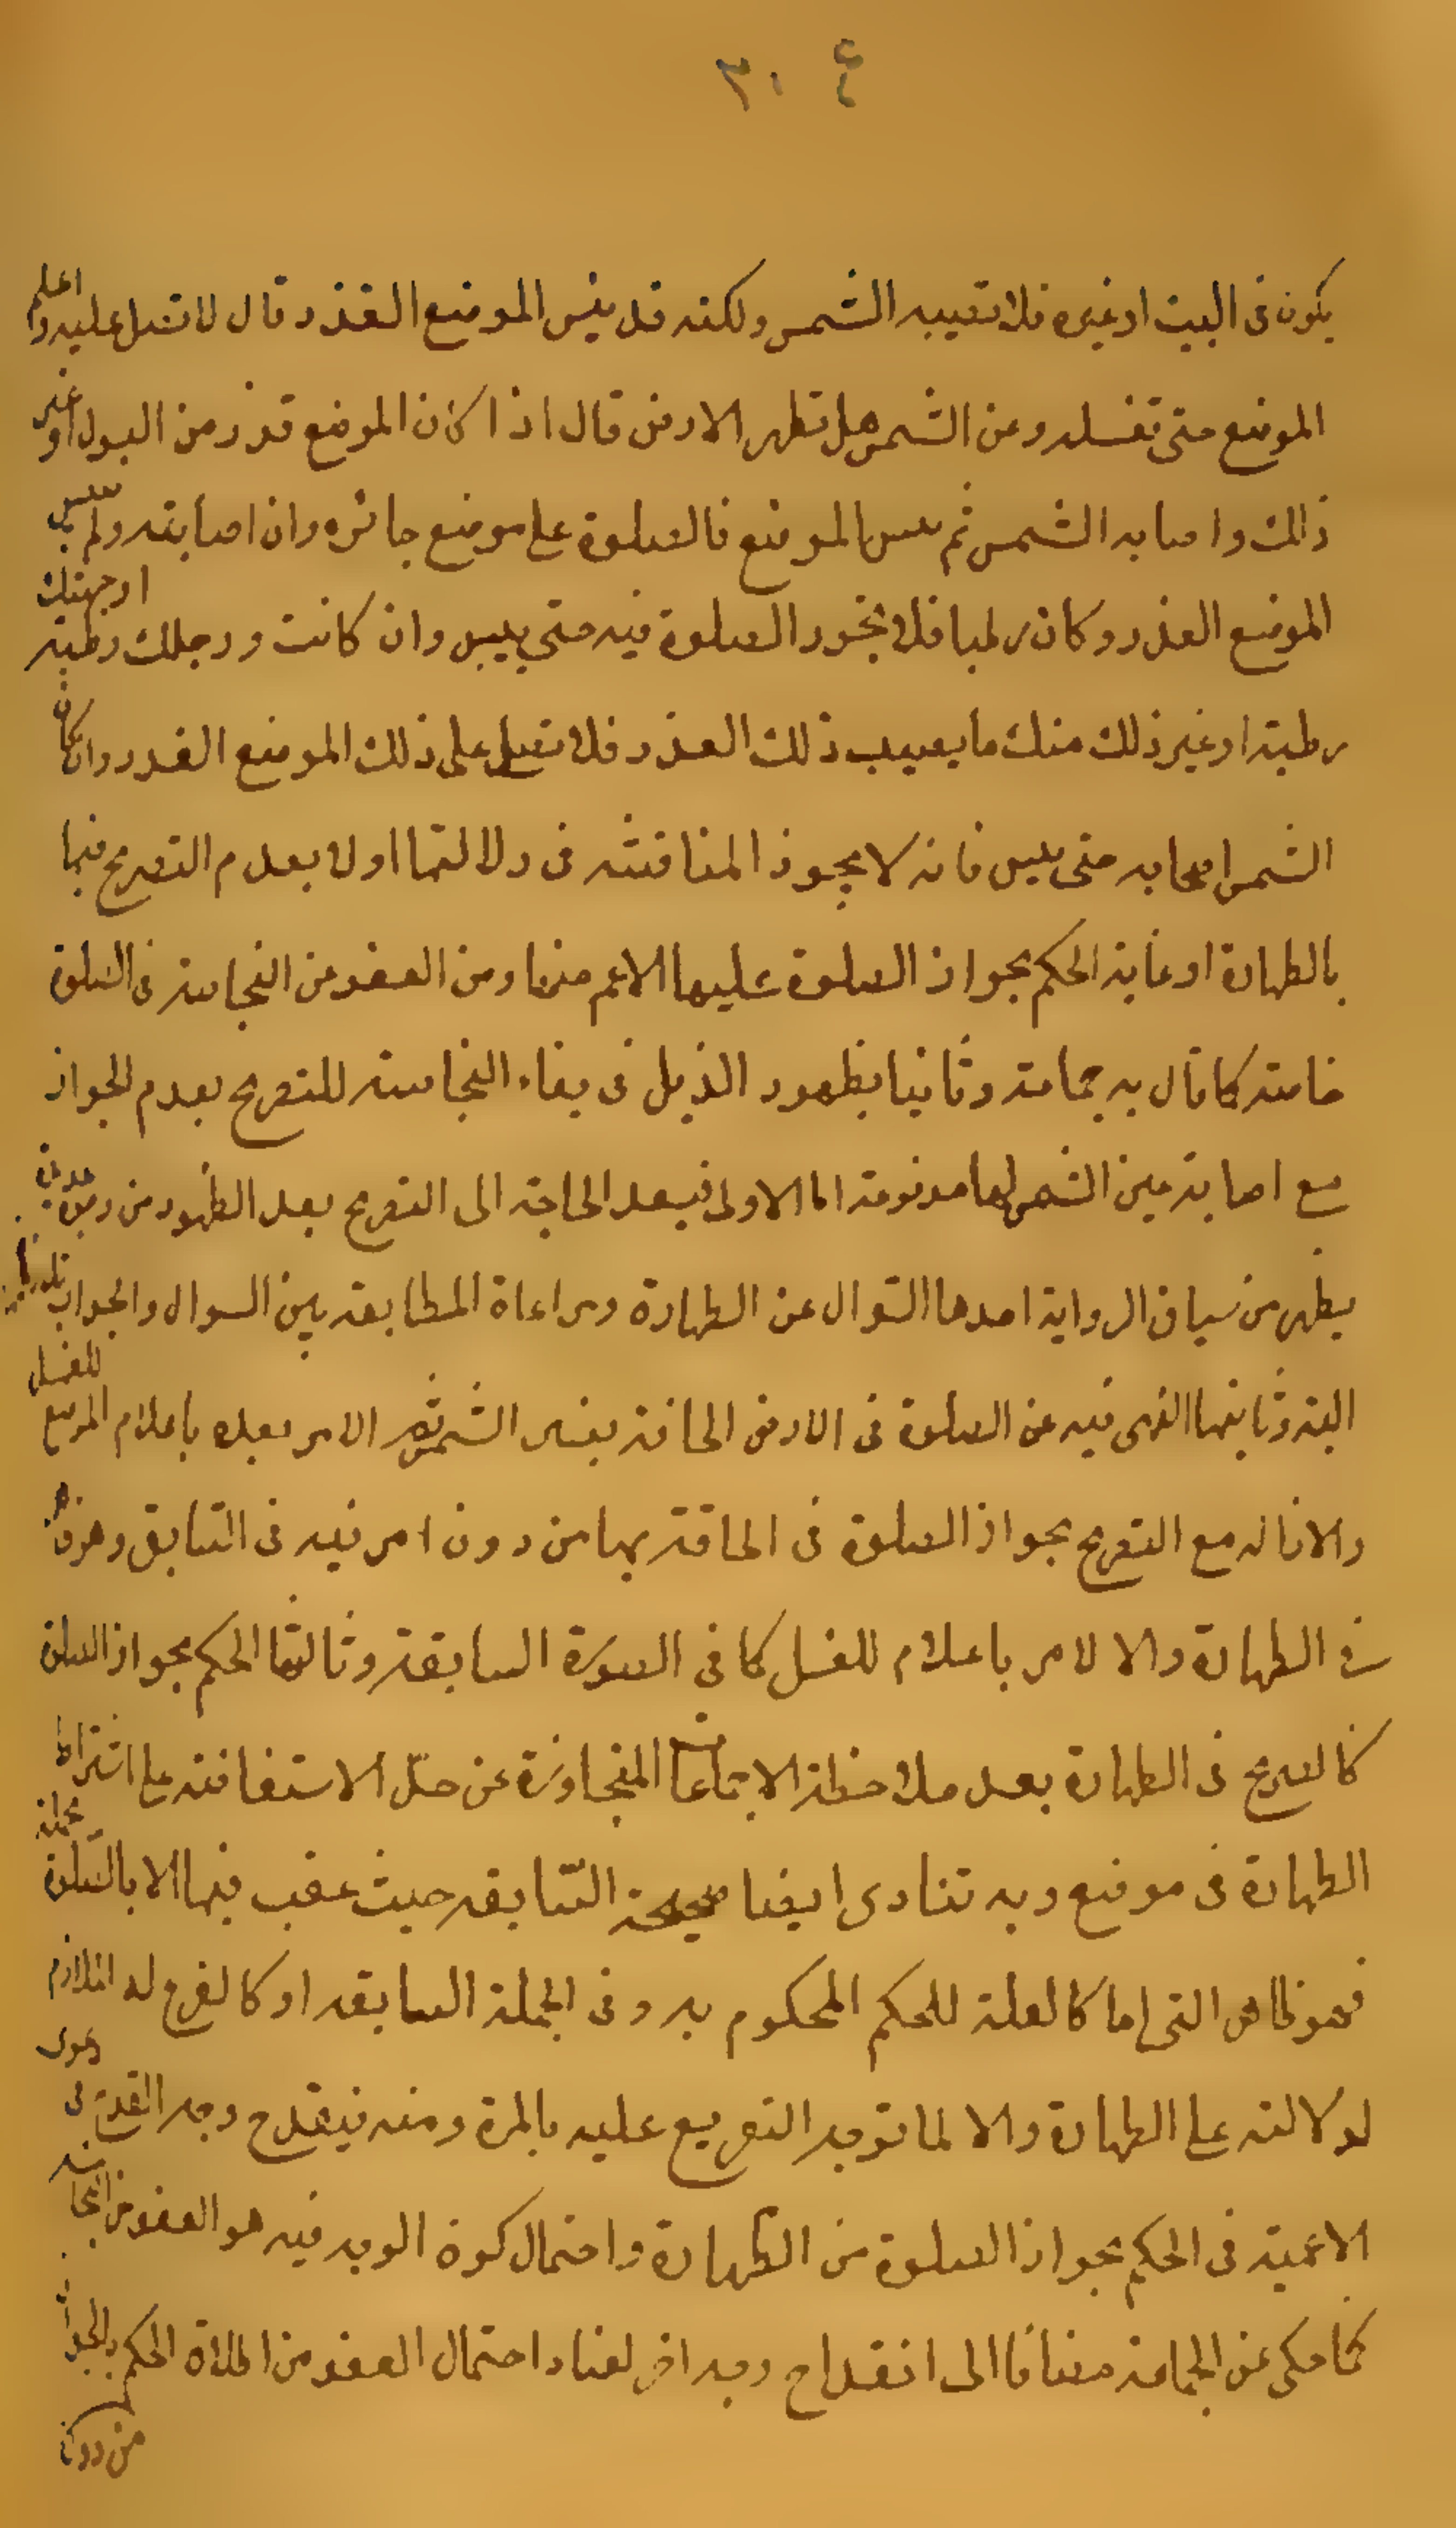 ٣٠٤
يكون فى البيت او غيره فلا تصيبه الشمس ولكنه قد يبس الموضع القذر قال لا تصل عليه واعلم
الموضع حتى تغسله وعن الشمس هل تطهر الارض قال اذا كان الموضع قذر من البول او غير
ذلك واصابه الشمس ثم يبس الموضع فالصلوة على موضع جائزه وان اصابته ولم ييبس
الموضع القذر وكان رطبا فلا تجوز الصلوة فيه حتى ييبس وان كانت ورجلك رطبته او جبهتك
رطبته او غير ذلك منك ما يصيب ذلك القذر فلا تصل على ذلك الموضع القدر وان كان
الشمس اصابه حتى يبس فانه لا يجوز المناقشه فى دلالتها اولا بعدم التصريح فيها
بالطهارة او غاية الحكم بجواز الصلوة عليها الاعم منها ومن العفو عن النجاسته فى الصلوة
خاصته كما قال به جماعته وثانيا بظهور الذيل فى بقاء النجاسته للتصريح بعدم الجواز
مع اصابة عين الشمس لها مدفوعته اما الاولى فبعد الحاجته الى التصريح بعد الظهور من وجوه عديدة
يظهر من سياق الرواية احدها السؤال عن الطهارة ومراعاة المطابقه بين السوال والجواب
البته وثانيها النهى فيه عن الصلوة فى الارض الجافته بغير الشمس ثم الامر بعده باعلام الموضع للغسل
والازاله مع التصريح بجواز الصلوة فى الجافته بها من دون امر فيه فى السابق وهو
فى الطهارة والا لامر باعلام للغسل كما فى الصورة السابقة وثالثها الحكم بجواز الصلوة
كالصريح فى الطهارة بعد ملاحظة الاجماعات المتجاوزة عن حدّ الاستفاضته على اشتراط
الطهارة فى موضع وبه تنادى ايضا صحيحة السّابقه حيث عقب فيها الا بالصّلوة
فهو ظاهر التى اما كالعلة للحكم المحكوم به و فى الجملة السابقه او كالفرع له التلازم
لدلالته على الطهارة والا لما توجه التفريع عليه بالمرة ومنه ينقدح وجه القدح فى دعوى
الاعمية فى الحكم بجواز الصلوة من الطهارة واحتمال كون الوجه فيه هو العفو عن النجاسته
كما حكى عن الجماعته مضافا الى انقداح وجه اخر لفساد احتمال العفو من اطلاق الحكم بالجواز
من دون